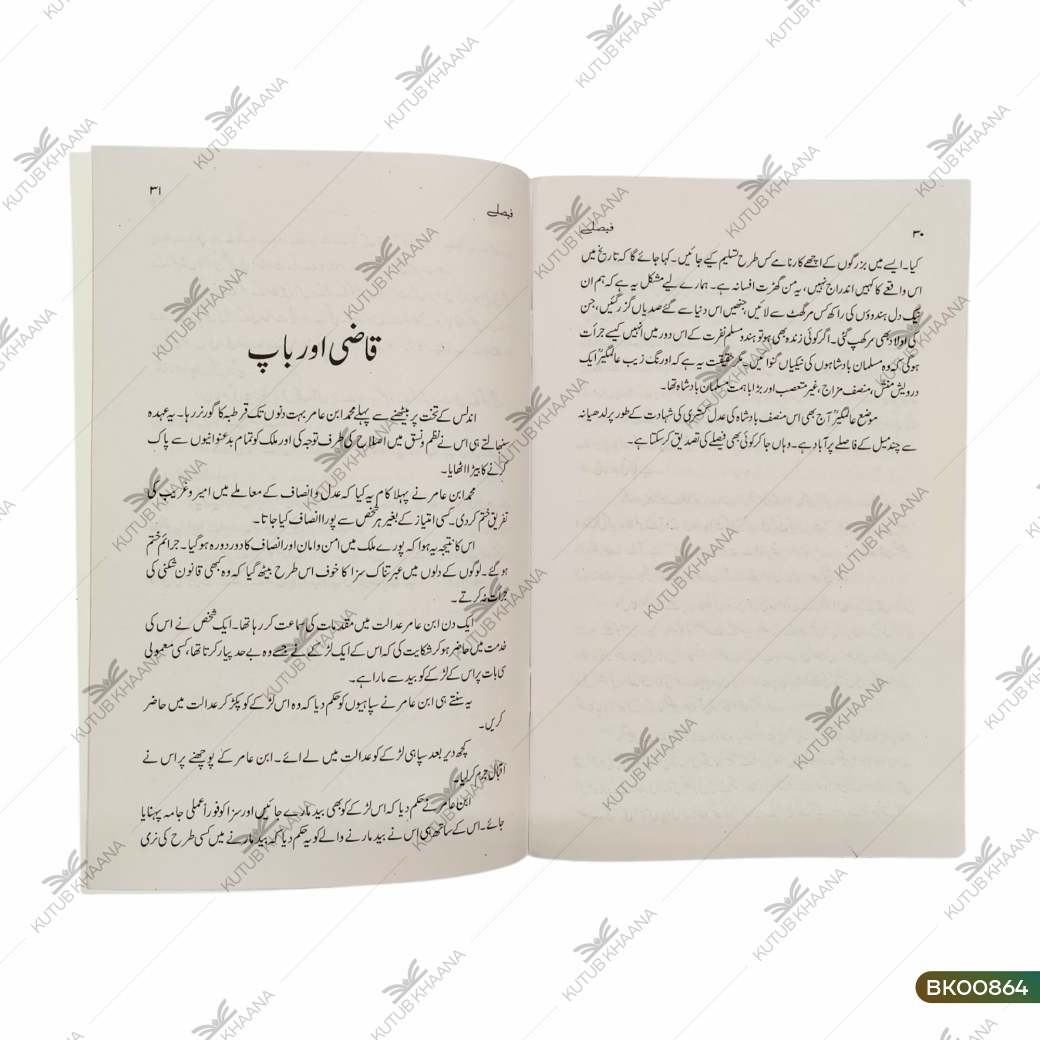 ۳۰
فیصلے
کیا۔ ایسے میں بزرگوں کے اچھے کارنامے کس طرح تسلیم کیے جائیں۔ کہا جائے گا کہ تاریخ میں
اس واقعے کا کہیں اندراج نہیں، یہ من گھڑت افسانہ ہے۔ ہمارے لیے مشکل یہ ہے کہ ہم ان
نیک دل ہندوؤں کی راکھ کس مرگھٹ سے لائیں، جنھیں اس دنیا سے گئے صدیاں گزر گئیں، جن
کی اولاد بھی مرکھپ گئی۔ اگر کوئی زندہ بھی ہو تو ہندو مسلم نفرت کے اس دور میں انہیں کیسے جرأت
ہوگی کہ وہ مسلمان بادشاہوں کی نیکیاں گنوائیں۔ مگر حقیقت یہ ہے کہ اورنگ زیب عالمگیرؒ ایک
درویش منش، منصف مزاج، غیر متعصب اور بڑا باہمت مسلمان بادشاہ تھا۔
موضع عالمگیرؒ آج بھی اس منصف بادشاہ کی عدل گستری کی شہادت کے طور پر لدھیانہ
سے چند میل کے فاصلے پر آباد ہے۔ وہاں جا کر کوئی بھی فیصلے کی تصدیق کر سکتا ہے۔
فیصلے
۳۱
قاضی اور باپ
اندلس کے تخت پر بیٹھنے سے پہلے محمد ابن عامر بہت دنوں تک قرطبہ کا گورنر رہا۔ یہ عہدہ
سنبھالتے ہی اس نے نظم و نسق میں اصلاح کی طرف توجہ کی اور ملک کو تمام بدعنوانیوں سے پاک
کرنے کا بیڑا اٹھایا۔
محمد ابن عامر نے پہلا کام یہ کیا کہ عدل و انصاف کے معاملے میں امیر و غریب کی
تفریق ختم کر دی۔ کسی امتیاز کے بغیر ہر شخص سے پورا انصاف کیا جاتا۔
اس کا نتیجہ یہ ہوا کہ پورے ملک میں امن و امان اور انصاف کا دور دورہ ہو گیا۔ جرائم ختم
ہو گئے۔ لوگوں کے دلوں میں عبرتناک سزا کا خوف اس طرح بیٹھ گیا کہ وہ کبھی قانون شکنی کی
جرأت نہ کرتے۔
ایک دن ابن عامر عدالت میں مقدمات کی سماعت کر رہا تھا۔ ایک شخص نے اس کی
خدمت میں حاضر ہو کر شکایت کی کہ اس کے ایک لڑکے نے جسے وہ بے حد پیار کرتا تھا، کسی معمولی
سی بات پر اس کے لڑکے کو بید سے مارا ہے۔
یہ سنتے ہی ابن عامر نے سپاہیوں کو حکم دیا کہ وہ اس لڑکے کو پکڑ کر عدالت میں حاضر
کریں۔
کچھ دیر بعد سپاہی لڑکے کو عدالت میں لے آئے۔ ابن عامر کے پوچھنے پر اس نے
اقبال جرم کر لیا۔
ابن عامر نے حکم دیا کہ اس لڑکے کو بھی بید مارے جائیں اور سزا کو فوراً عملی جامہ پہنایا
جائے۔ اس کے ساتھ ہی اس نے بید مارنے والے کو یہ حکم دیا کہ بید مارنے میں کسی طرح کی نرمی
KUTUB KHAANA
BK00864